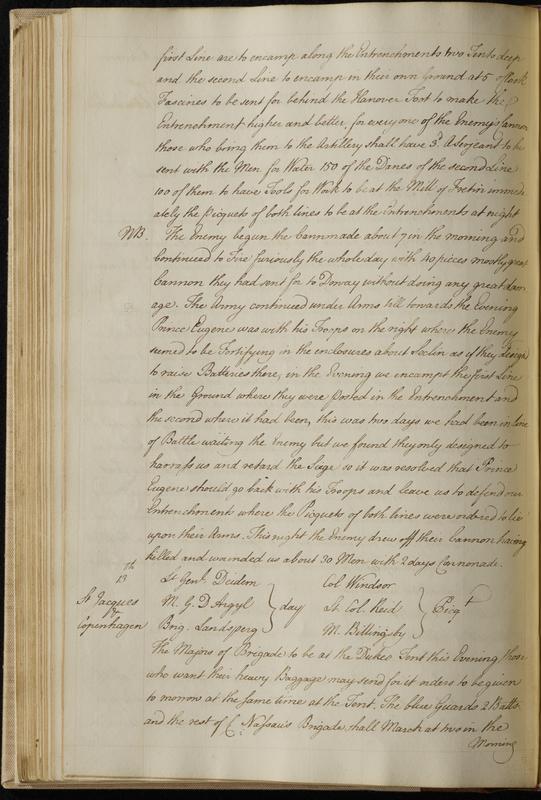 first Line are to encamp along the Entrenchments two Tents deep
and the second Line to encamp in their own Ground at 5 oClock
Fascines to be sent for behind the Hanover Foot to make the
Entrenchment higher and better. for every one of the Enemy's Cannon
those who bring them to the Artillery shall have 3d. A Serjeant to be
sent with the Men for Water 150 of the Danes of the second Line
100 of them to have Tools for Work to be at the Mill of Fretin immedi
ately the Picquets of both lines to be at the intrenchments at night
NB. The Enemy begun the Cannonade about 7 in the morning and
Continued to Fire furiously the whole day with 40 pieces mostly great
Cannon they had sent for to Doway without doing any great dam
age. The Army continued under Arms till towards the Evening
Prince Eugene was with his Troops on the right where the Enemy
seemed to be Fortifying in the enclosures about Seclin as if they design
to raise Batteries there, in the Evening we encampt the first Line
in the Ground where they were posted in the Entrenchment and
the second where it had been, this was two days we had been in Line
of Battle waiting the Enemy but we found they only designed to
harrass us and retard the Siege so it was resolved that Prince
Eugene should go back with his Troops and leave us to defend our
Entrenchments where the Picquets of both lines were ordered to lie
upon their Arms. This night the Enemy drew off their Cannon having
killed and wounded us about 30 Men with 2 days Cannonade.
13th
St Jacques & Copenhagen
Lt Genl. Dedem
M. G. D Argyl
Brig. Landsperg
day
Col Windsor
Lt. Col. Reid
M. Billingsby
Picqt
The Majors of Brigade to be at the Dukes Tent this Evening, those
who want their heavy Baggage may send for it orders to be given
to morrow at the same time at the Tent. The blue Guards 2 Batts.
and the rest of C: Nassau's Brigade, shall March at two in the
Morning